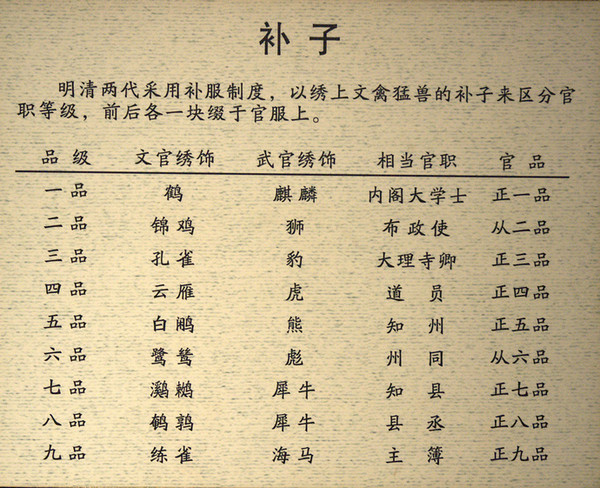 补子
明清两代采用补服制度，以绣上文禽猛兽的补子来区分官
职等级，前后各一块缀于官服上。
品级 文官绣饰 武官绣饰 相当官职 官品
一品 鹤 麒麟 内阁大学士 正一品
二品 锦鸡 狮 布政使 从二品
三品 孔雀 豹 大理寺卿 正三品
四品 云雁 虎 道员 正四品
五品 白鹇 熊 知州 正五品
六品 鹭鸶 彪 州同 从六品
七品 鸂鶒 犀牛 知县 正七品
八品 鹌鹑 犀牛 县丞 正八品
九品 练雀 海马 主簿 正九品